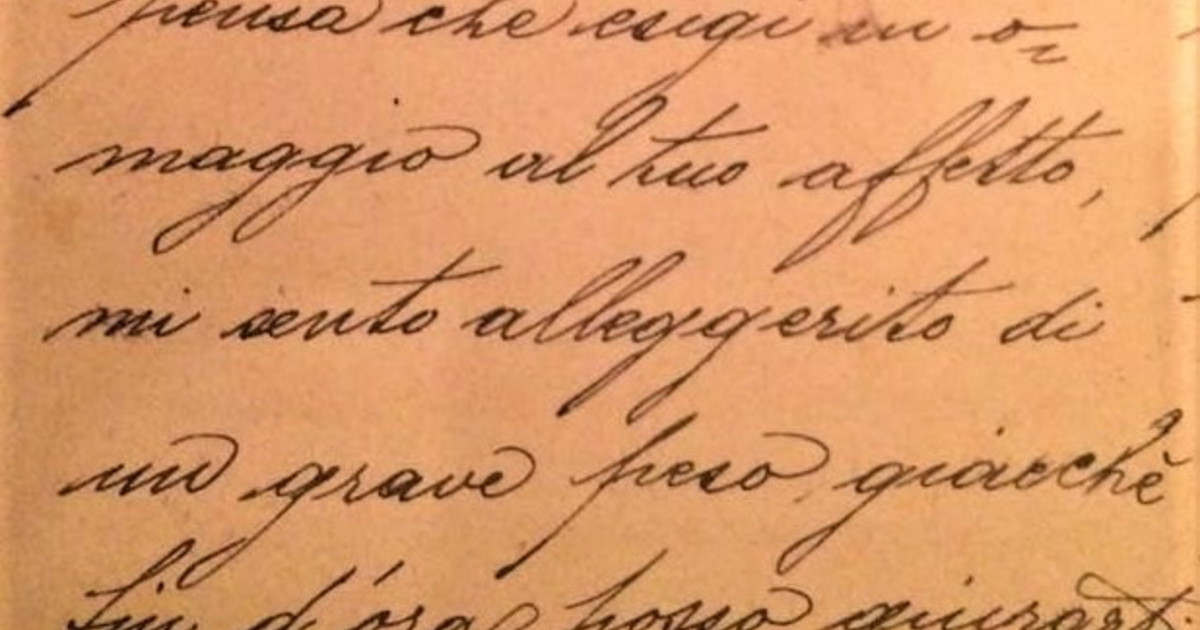 pensa che esigi in o=
maggio al tuo affetto,
mi sento alleggerito di
un grave peso giacchè
fin d'ora posso giurart